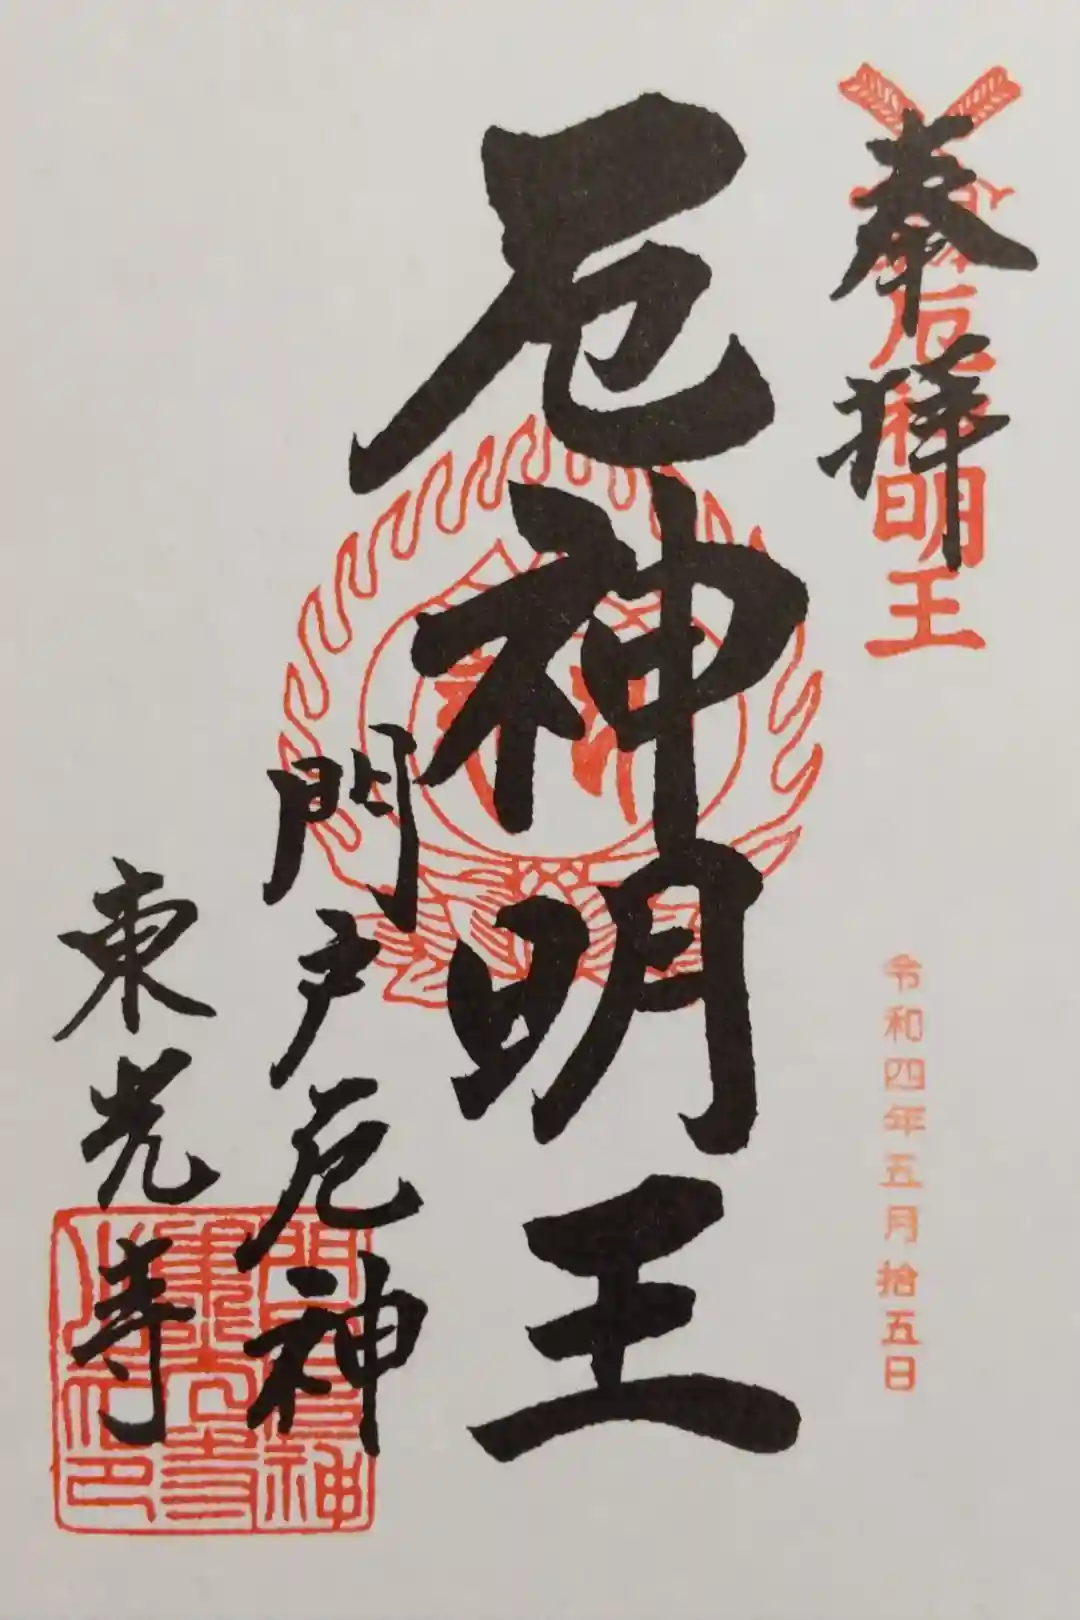 奉拝
厄神明王
令和四年五月拾五日
厄神明王
門戸厄神
東光寺